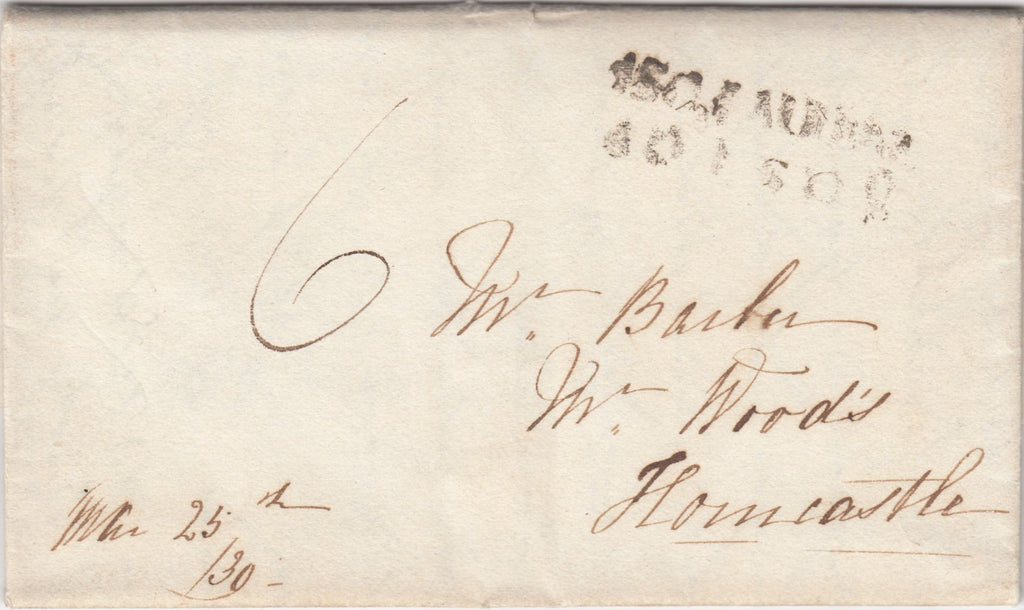 6
Mr. Barber
Mr. Wood's
Horncastle
Mar 25th
/30